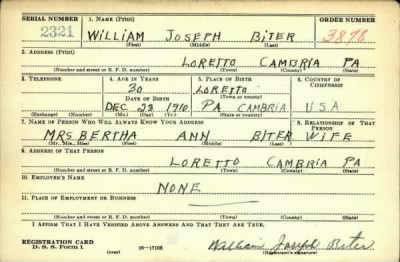 SERIAL NUMBER 1. NAME (Print) ORDER NUMBER
2321 WILLIAM JOSEPH BITER 3898
(First) (Middle) (Last)
2. ADDRESS (Print)
LORETTO CAMBRIA PA
(Number and street or R. F. D. number) (Town) (County) (State)
3. TELEPHONE 4. AGE IN YEARS 5. PLACE OF BIRTH 6. COUNTRY OF CITIZENSHIP
30 LORETTO
DATE OF BIRTH (Town or county)
DEC 23 1910 PA CAMBRIA USA
(Exchange) (Number) (Mo.) (Day) (Yr.) (State or country)
7. NAME OF PERSON WHO WILL ALWAYS KNOW YOUR ADDRESS 8. RELATIONSHIP OF THAT PERSON
MRS BERTHA ANN BITER WIFE
(Mr., Mrs., Miss) (First) (Middle) (Last)
9. ADDRESS OF THAT PERSON
LORETTO CAMBRIA PA
(Number and street or R. F. D. number) (Town) (County) (State)
10. EMPLOYER'S NAME
NONE
11. PLACE OF EMPLOYMENT OR BUSINESS
(Number and street or R. F. D. number) (Town) (County) (State)
I AFFIRM THAT I HAVE VERIFIED ABOVE ANSWERS AND THAT THEY ARE TRUE.
REGISTRATION CARD
D. S. S. Form 1 (over) William Joseph Biter
(Registrant's signature)